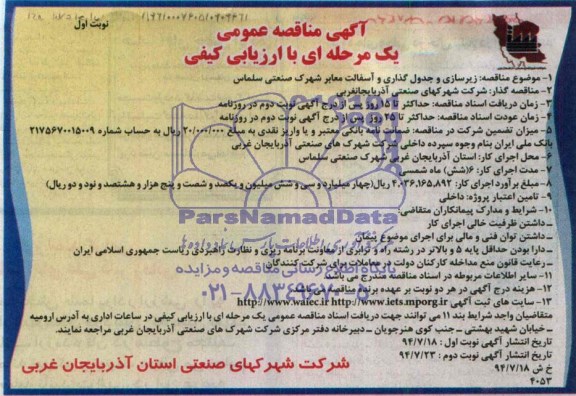 نوبت اول
آگهی مناقصه عمومی
یک مرحله ای با ارزیابی کیفی
۱- موضوع مناقصه: زیرسازی و جدول گذاری و آسفالت معابر شهرک صنعتی سلماس
۲- مناقصه گذار: شرکت شهرکهای صنعتی آذربایجانغربی
۳- زمان دریافت اسناد مناقصه: حداکثر تا ۱۵ روز پس از درج آگهی نوبت دوم در روزنامه
۴- زمان عودت اسناد مناقصه: حداکثر تا ۲۵ روز پس از درج آگهی نوبت دوم در روزنامه
۵- میزان تضمین شرکت در مناقصه: ضمانت نامه بانکی معتبر و یا واریز نقدی به مبلغ ۲۰/۰۰۰/۰۰۰ ریال به حساب شماره ۲۱۷۵۶۷۰۰۱۵۰۰۹
بانک ملی ایران بنام وجوه سپرده داخلی شرکت شهرک های صنعتی آذربایجان غربی
۶- محل اجرای کار: استان آذربایجان غربی شهرک صنعتی سلماس
۷- مدت اجرای کار: ۶(شش) ماه شمسی
۸- مبلغ برآورد اجرای کار: ۴,۰۳۶,۱۶۵,۸۹۲ ریال(چهار میلیارد و سی و شش میلیون و یکصد و شصت و پنج هزار و هشتصد و نود و دو ریال)
۹- تامین اعتبار پروژه: داخلی
۱۰- شرایط و مدارک پیمانکاران متقاضی:
ــ داشتن ظرفیت خالی اجرای کار
ــ داشتن توان فنی و مالی برای اجرای موضوع پیمان
ــ دارا بودن حداقل پایه ۵ و بالاتر در رشته راه و ترابری از معاونت برنامه ریزی و نظارت راهبردی ریاست جمهوری اسلامی ایران
ــ رعایت قانون منع مداخله کارکنان دولت در معاملات برای شرکت کنندگان
۱۱- سایر اطلاعات مربوطه در اسناد مناقصه مندرج می باشد
۱۲- هزینه درج آگهی در هر دو نوبت بر عهده برنده مناقصه می باشد
۱۳- سایت های ثبت آگهی http://www.waiec.ir http://www.iets.mporg.ir
متقاضیان واجد شرایط بند ۱۱ می توانند جهت دریافت اسناد مناقصه عمومی یک مرحله ای با ارزیابی کیفی در ساعات اداری به آدرس ارومیه
ــ خیابان شهید بهشتی ــ جنب کوی هنرجویان ــ دبیرخانه دفتر مرکزی شرکت شهرک های صنعتی آذربایجان غربی مراجعه نمایند.
تاریخ انتشار آگهی نوبت اول : ۹۴/۷/۱۸
تاریخ انتشار آگهی نوبت دوم : ۹۴/۷/۲۳
خ ش ۹۴/۷/۱۸
۴۰۵۳
شرکت شهرکهای صنعتی استان آذربایجان غربی
ParsNamadData
پایگاه اطلاع رسانی مناقصه و مزایده
۰۲۱-۸۸۳۴۹۶۷۰-۵